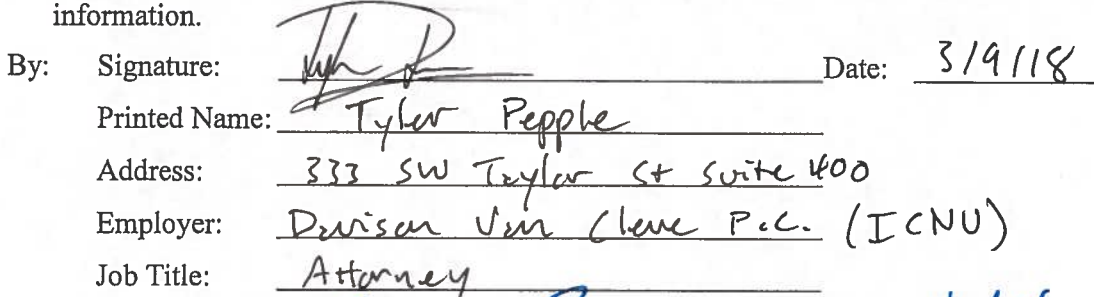 information.
By: Signature: Date: 3/9/18
Printed Name: Tyler Pepple
Address: 333 SW Taylor St Suite 400
Employer: Davison Van Cleve P.C. (ICNU)
Job Title: Attorney